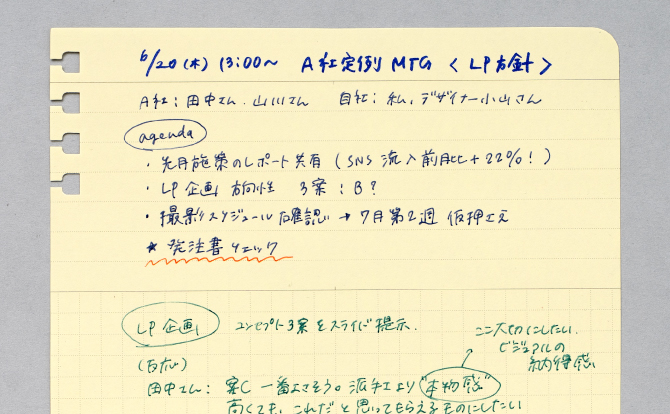 6/20(木) 13:00〜 A社定例MTG <LP方針>
A社:田中さん、山川さん 自社:私、デザイナー小山さん
agenda
・先月施策のレポート共有(SNS流入前月比+22%!)
・LP企画 方向性 3案:B?
・撮影スケジュール確認→7月第2週 仮押さえ
★発注書チェック
LP企画 コンセプト3案をスライド提示.
ここ大切にしたい.
ビジュアルの
納得感
(反応)
田中さん:案C 一番よさそう。派手さより"本物感"
高くても、これだと思ってもらえるものにしたい